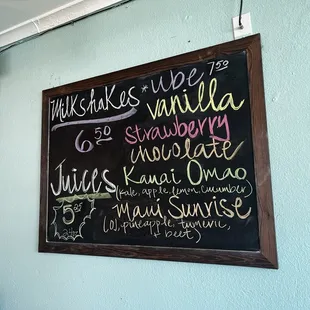 Milkshakes * ube 7.50
6.50 vanilla
strawberry
chocolate
Juices Kauai Omao
(kale, apple, lemon, cucumber
5.95 Maui Sunrise
(OJ, pineapple, tumeric,
+ beet)